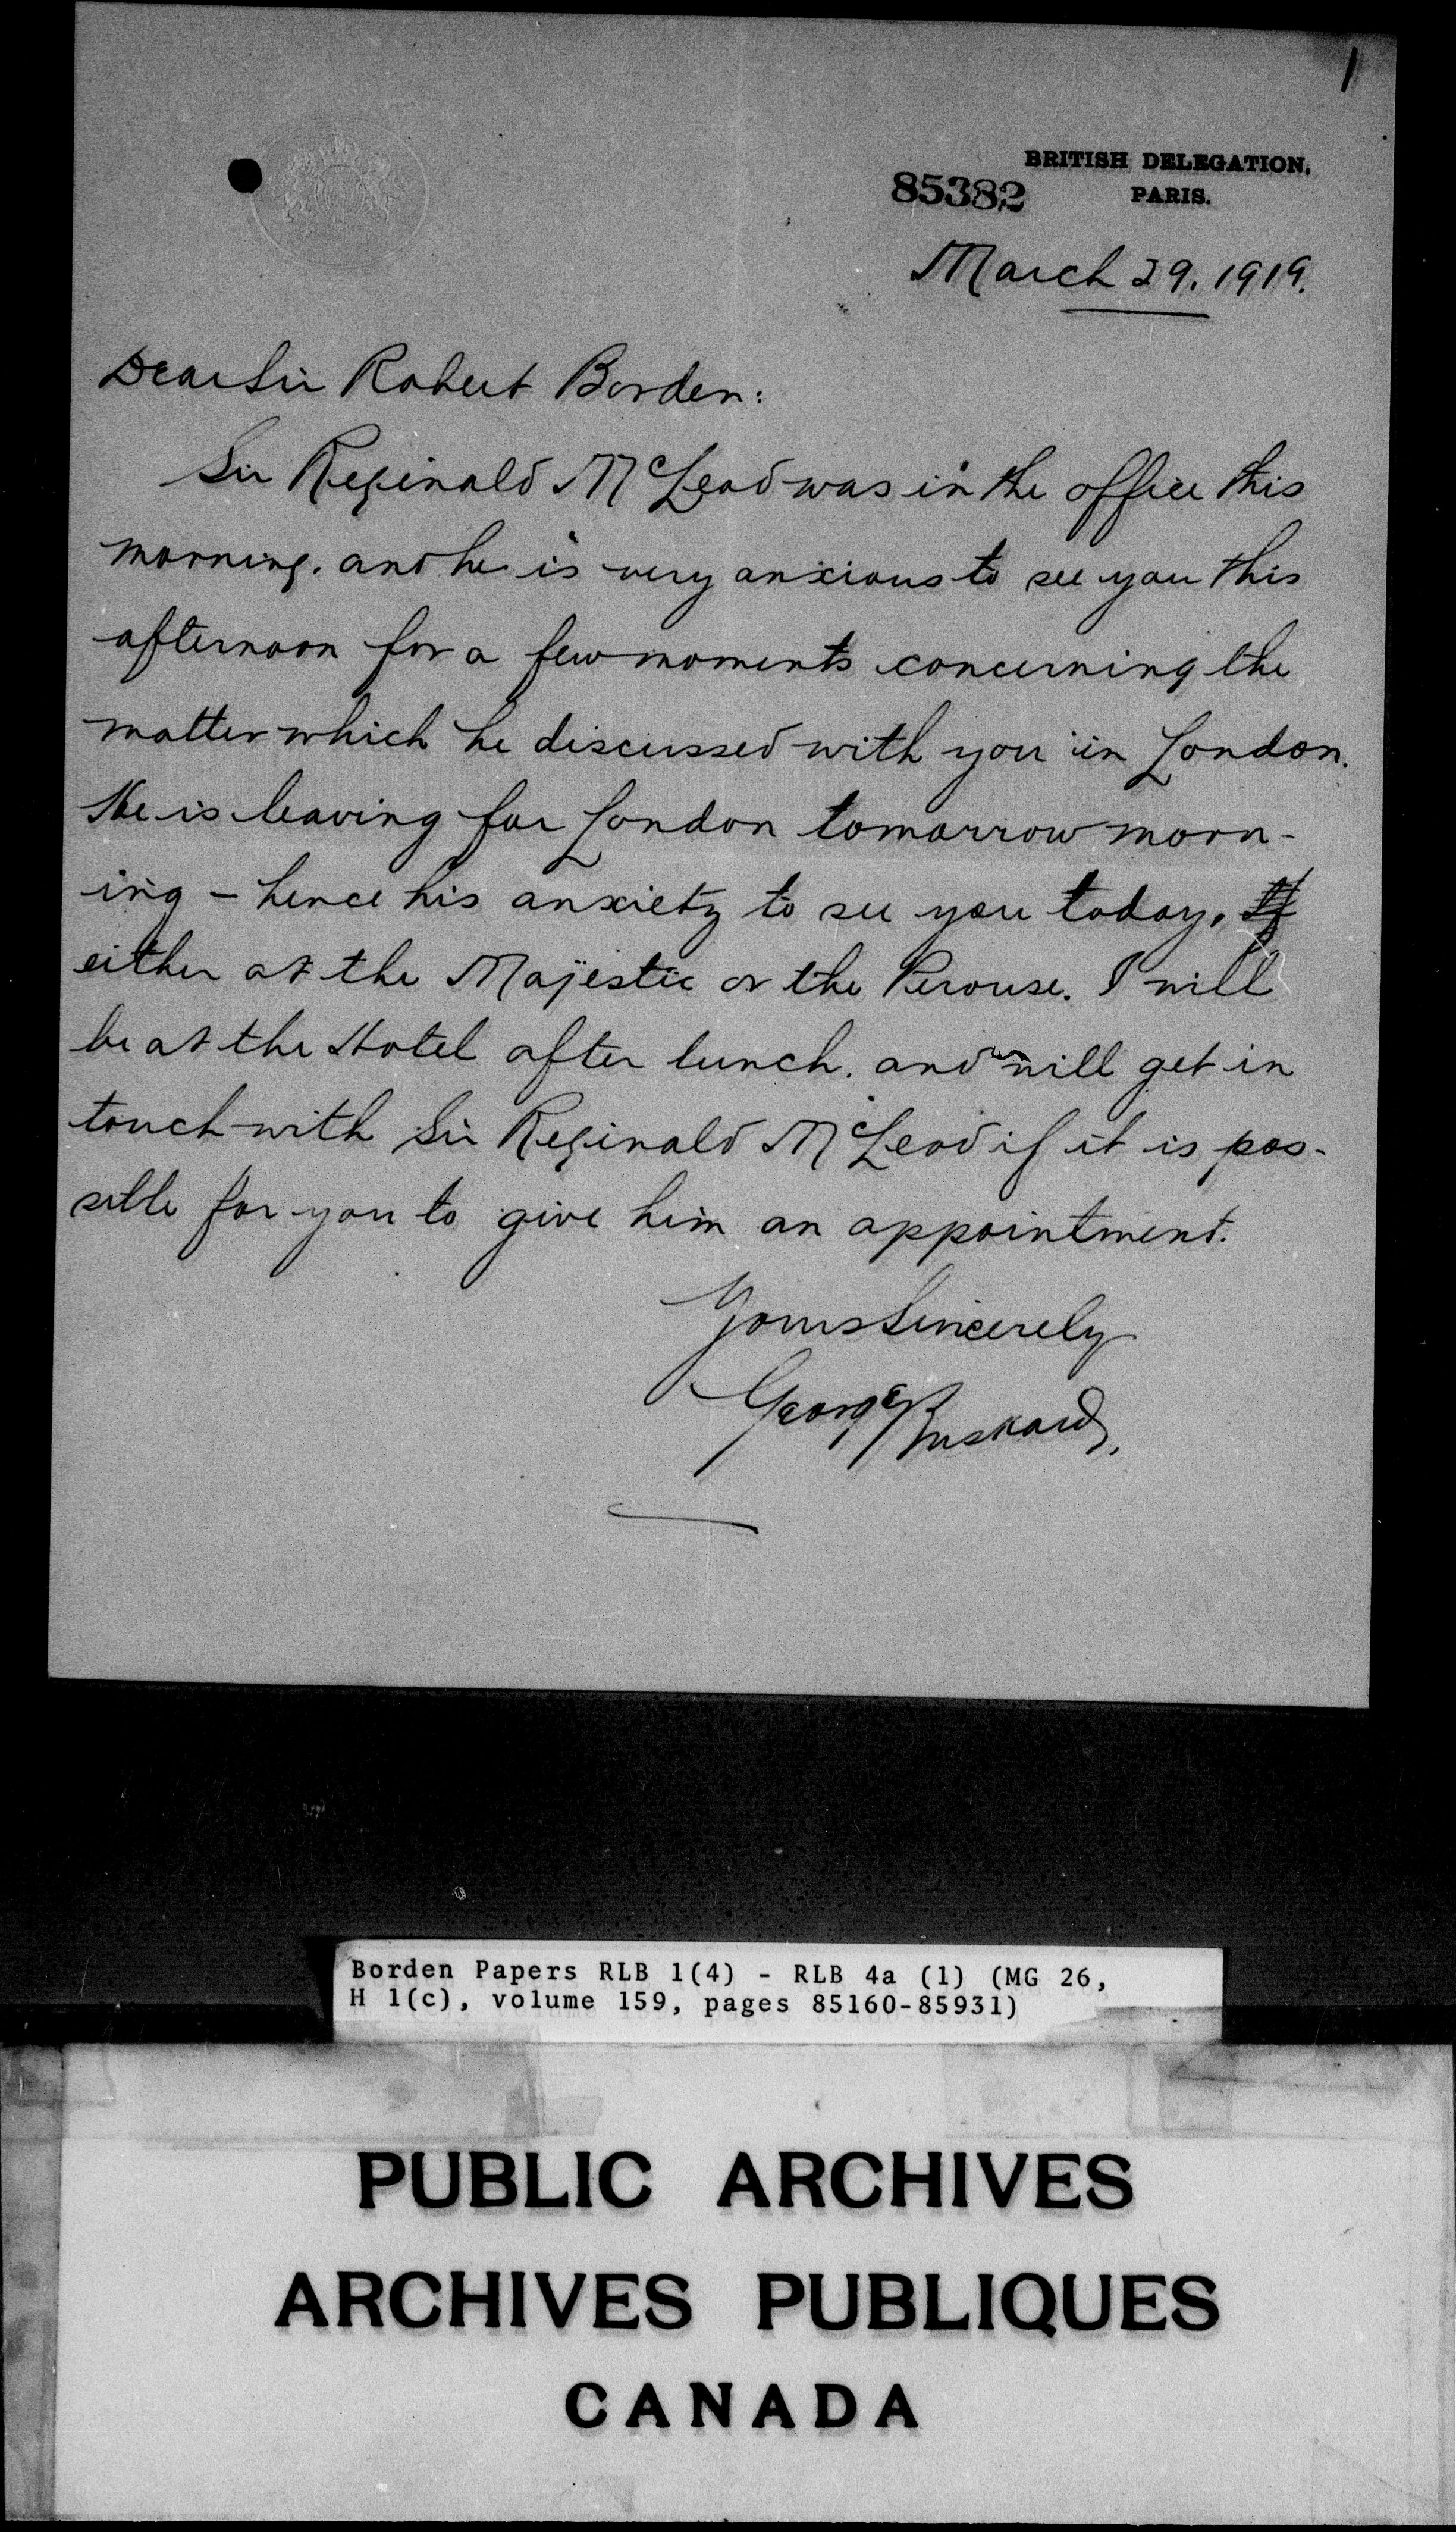 1
BRITISH DELEGATION,
85382
PARIS.
March 29. 1919.
Dear Sir Robert Borden:
Sir Reginald McLeod was in the office this
morning. and he is very anxious to see you this
afternoon for a few moments concerning the
matter which he discussed with you in London.
He is leaving for London tomorrow morn-
ing - hence his anxiety to see you today. If
either at the Majestic or the Perouse. I will
be at the Hotel after lunch. and will get in
touch with Sir Reginald McLeod if it is pos-
sible for you to give him an appointment.
Yours Sincerely
George Buskard.
Borden Papers RLB 1(4) - RLB 4a (1) (MG 26,
H 1(c), volume 159, pages 85160-85931)
PUBLIC ARCHIVES
ARCHIVES PUBLIQUES
CANADA